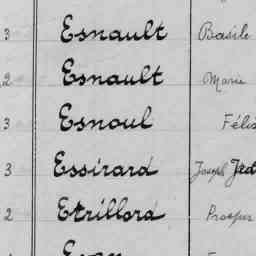 3 Esnault Basile
2 Esnault Marie
3 Esnoul Félix
3 Essirard Joseph
2 Etrillard Prosper